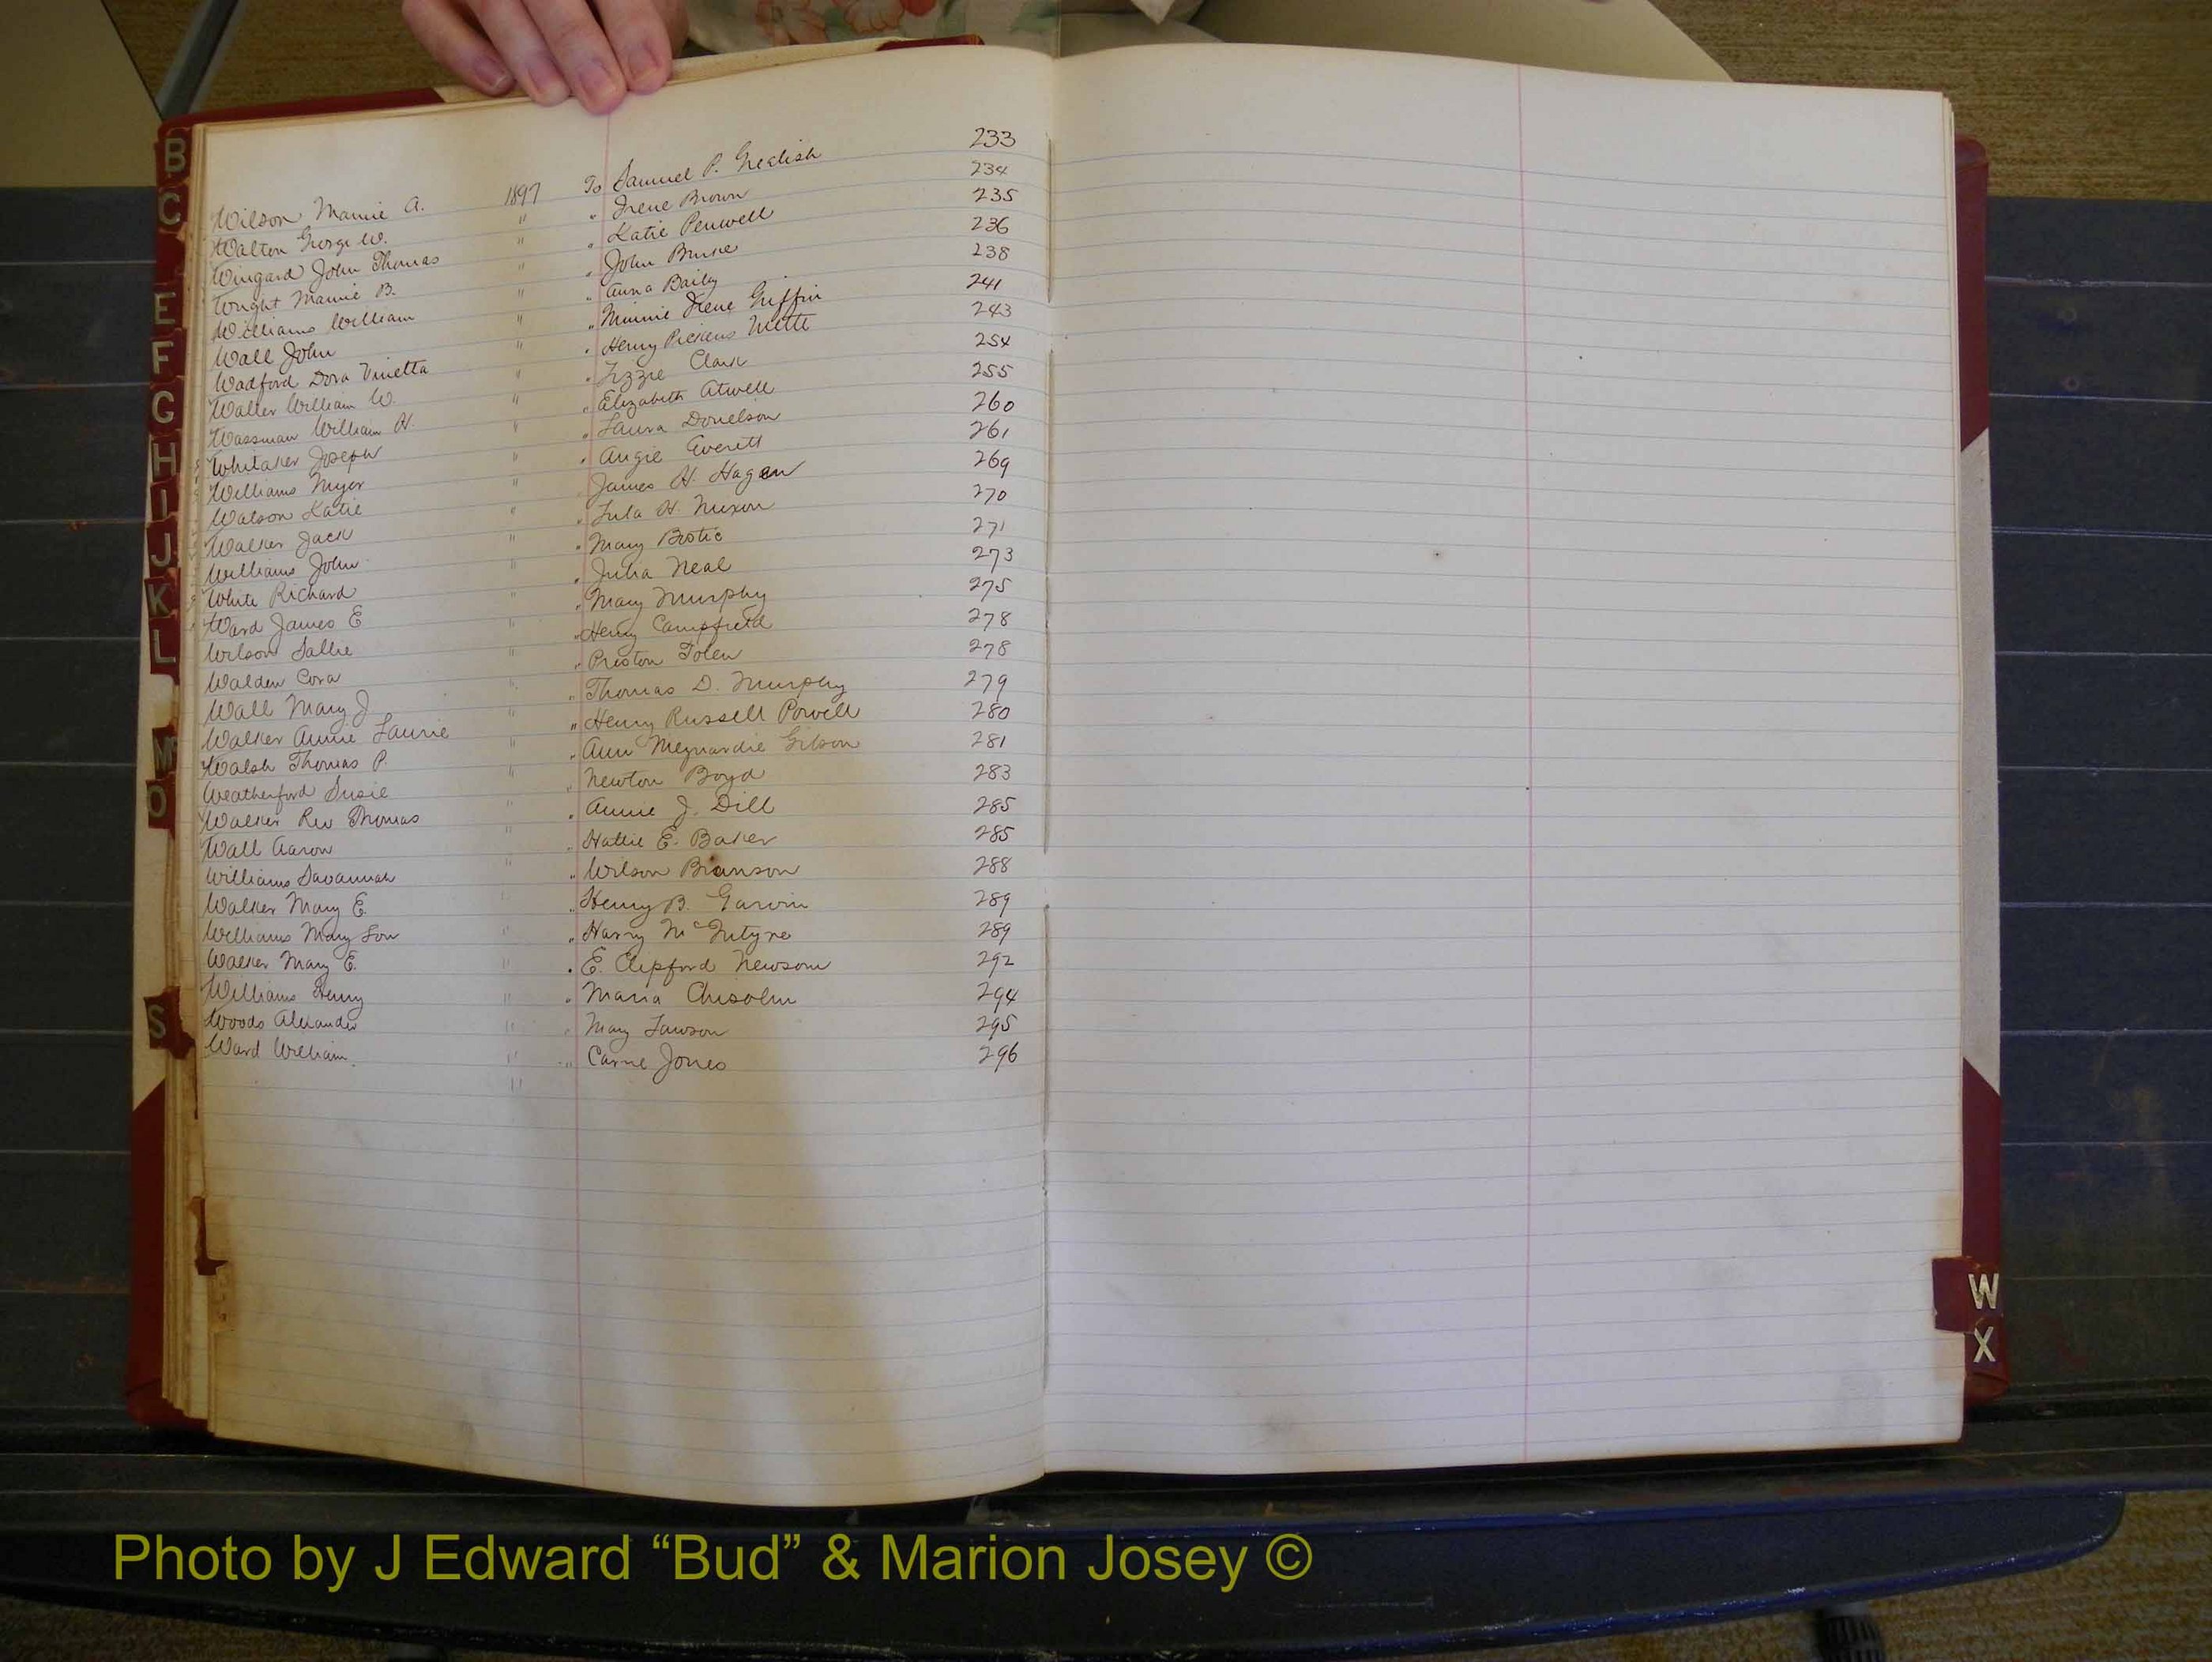 B
C
E
F
G
H
I
J
K
L
M
O
S
Wilson Mamie A. 1897 To Samuel P. Grealish 233
Walton George W. " " Irene Brown 234
Wingard John Thomas " " Katie Penwell 235
Wright Mamie B. " " John Burke 236
Williams William " " Anna Baily 238
Wall John " " Minnie Irene Griffin 241
Wadford Dora Vinetta " " Henry Pickens 243
Walter William W. " " Lizzie Clark 254
Wassman William H. " " Elizabeth Atwell 255
Whitaker Joseph " " Laura Donelson 260
Williams Myer " " Angie Everett 261
Watson Katie " " James H. Hagan 269
Walker Jack " " Lula H. Nixon 270
Williams John " " Mary Bostic 271
White Richard " " Julia Neal 273
Ward James E " " Mary Murphy 275
Wilson Sallie " " Henry Campfield 278
Walden Cora " " Preston Tolen 278
Wall Mary J " " Thomas D. Murphy 279
Walker Annie Laurie " " Henry Russell Powell 280
Walsh Thomas P. " " Ann Meynardie Gibson 281
Weatherford Susie " " Newton Boyd 283
Walker Rev Thomas " " Annie J. Dill 285
Wall Aaron " " Hattie E. Baker 285
Williams Savannah " " Wilson Branson 288
Walker Mary E. " " Henry B. Garvin 289
Williams Mary Lou " " Harry McIntyre 289
Walker Mary E. " " E. Clipford Newsom 292
Williams Henry " " Maria Chisolm 294
Woods Alexander " " Mary Lawson 295
Ward William " " Carrie Jones 296
W
X
Photo by J Edward “Bud” & Marion Josey ©